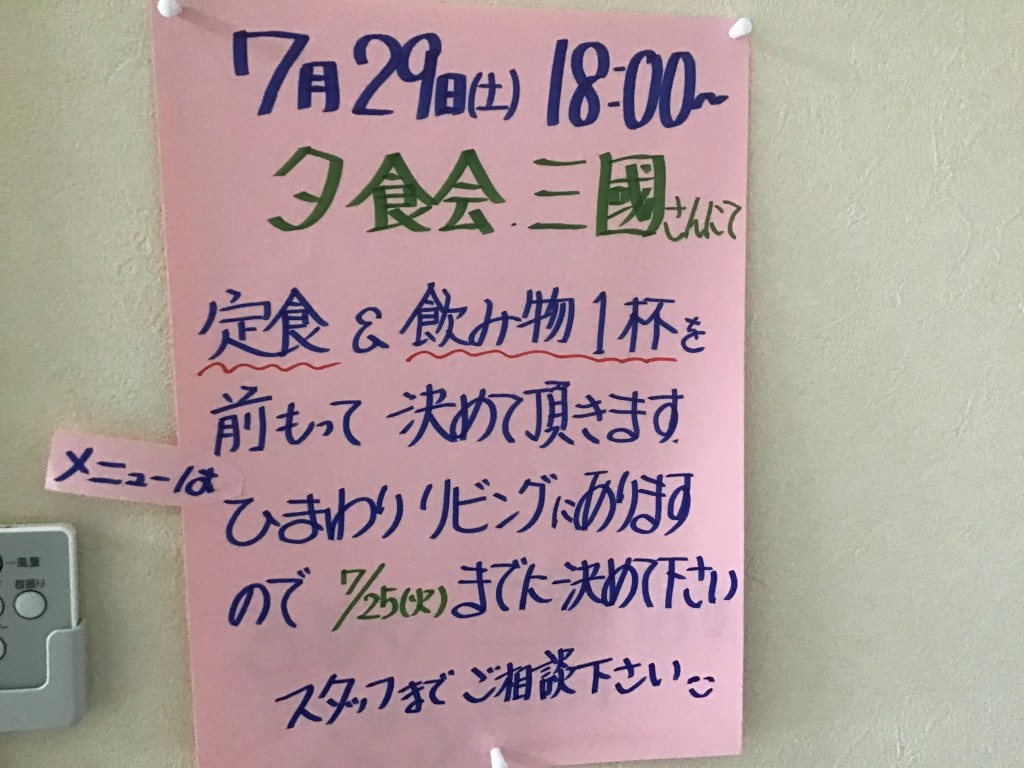 7月29日(土) 18:00〜
夕食会 三國さんにて
定食 & 飲み物1杯を
前もって 決めて頂きます
メニューは
ひまわりリビングにあります
ので 7/25(火)までに決めて下さい
スタッフまでご相談下さい
風量
首振り